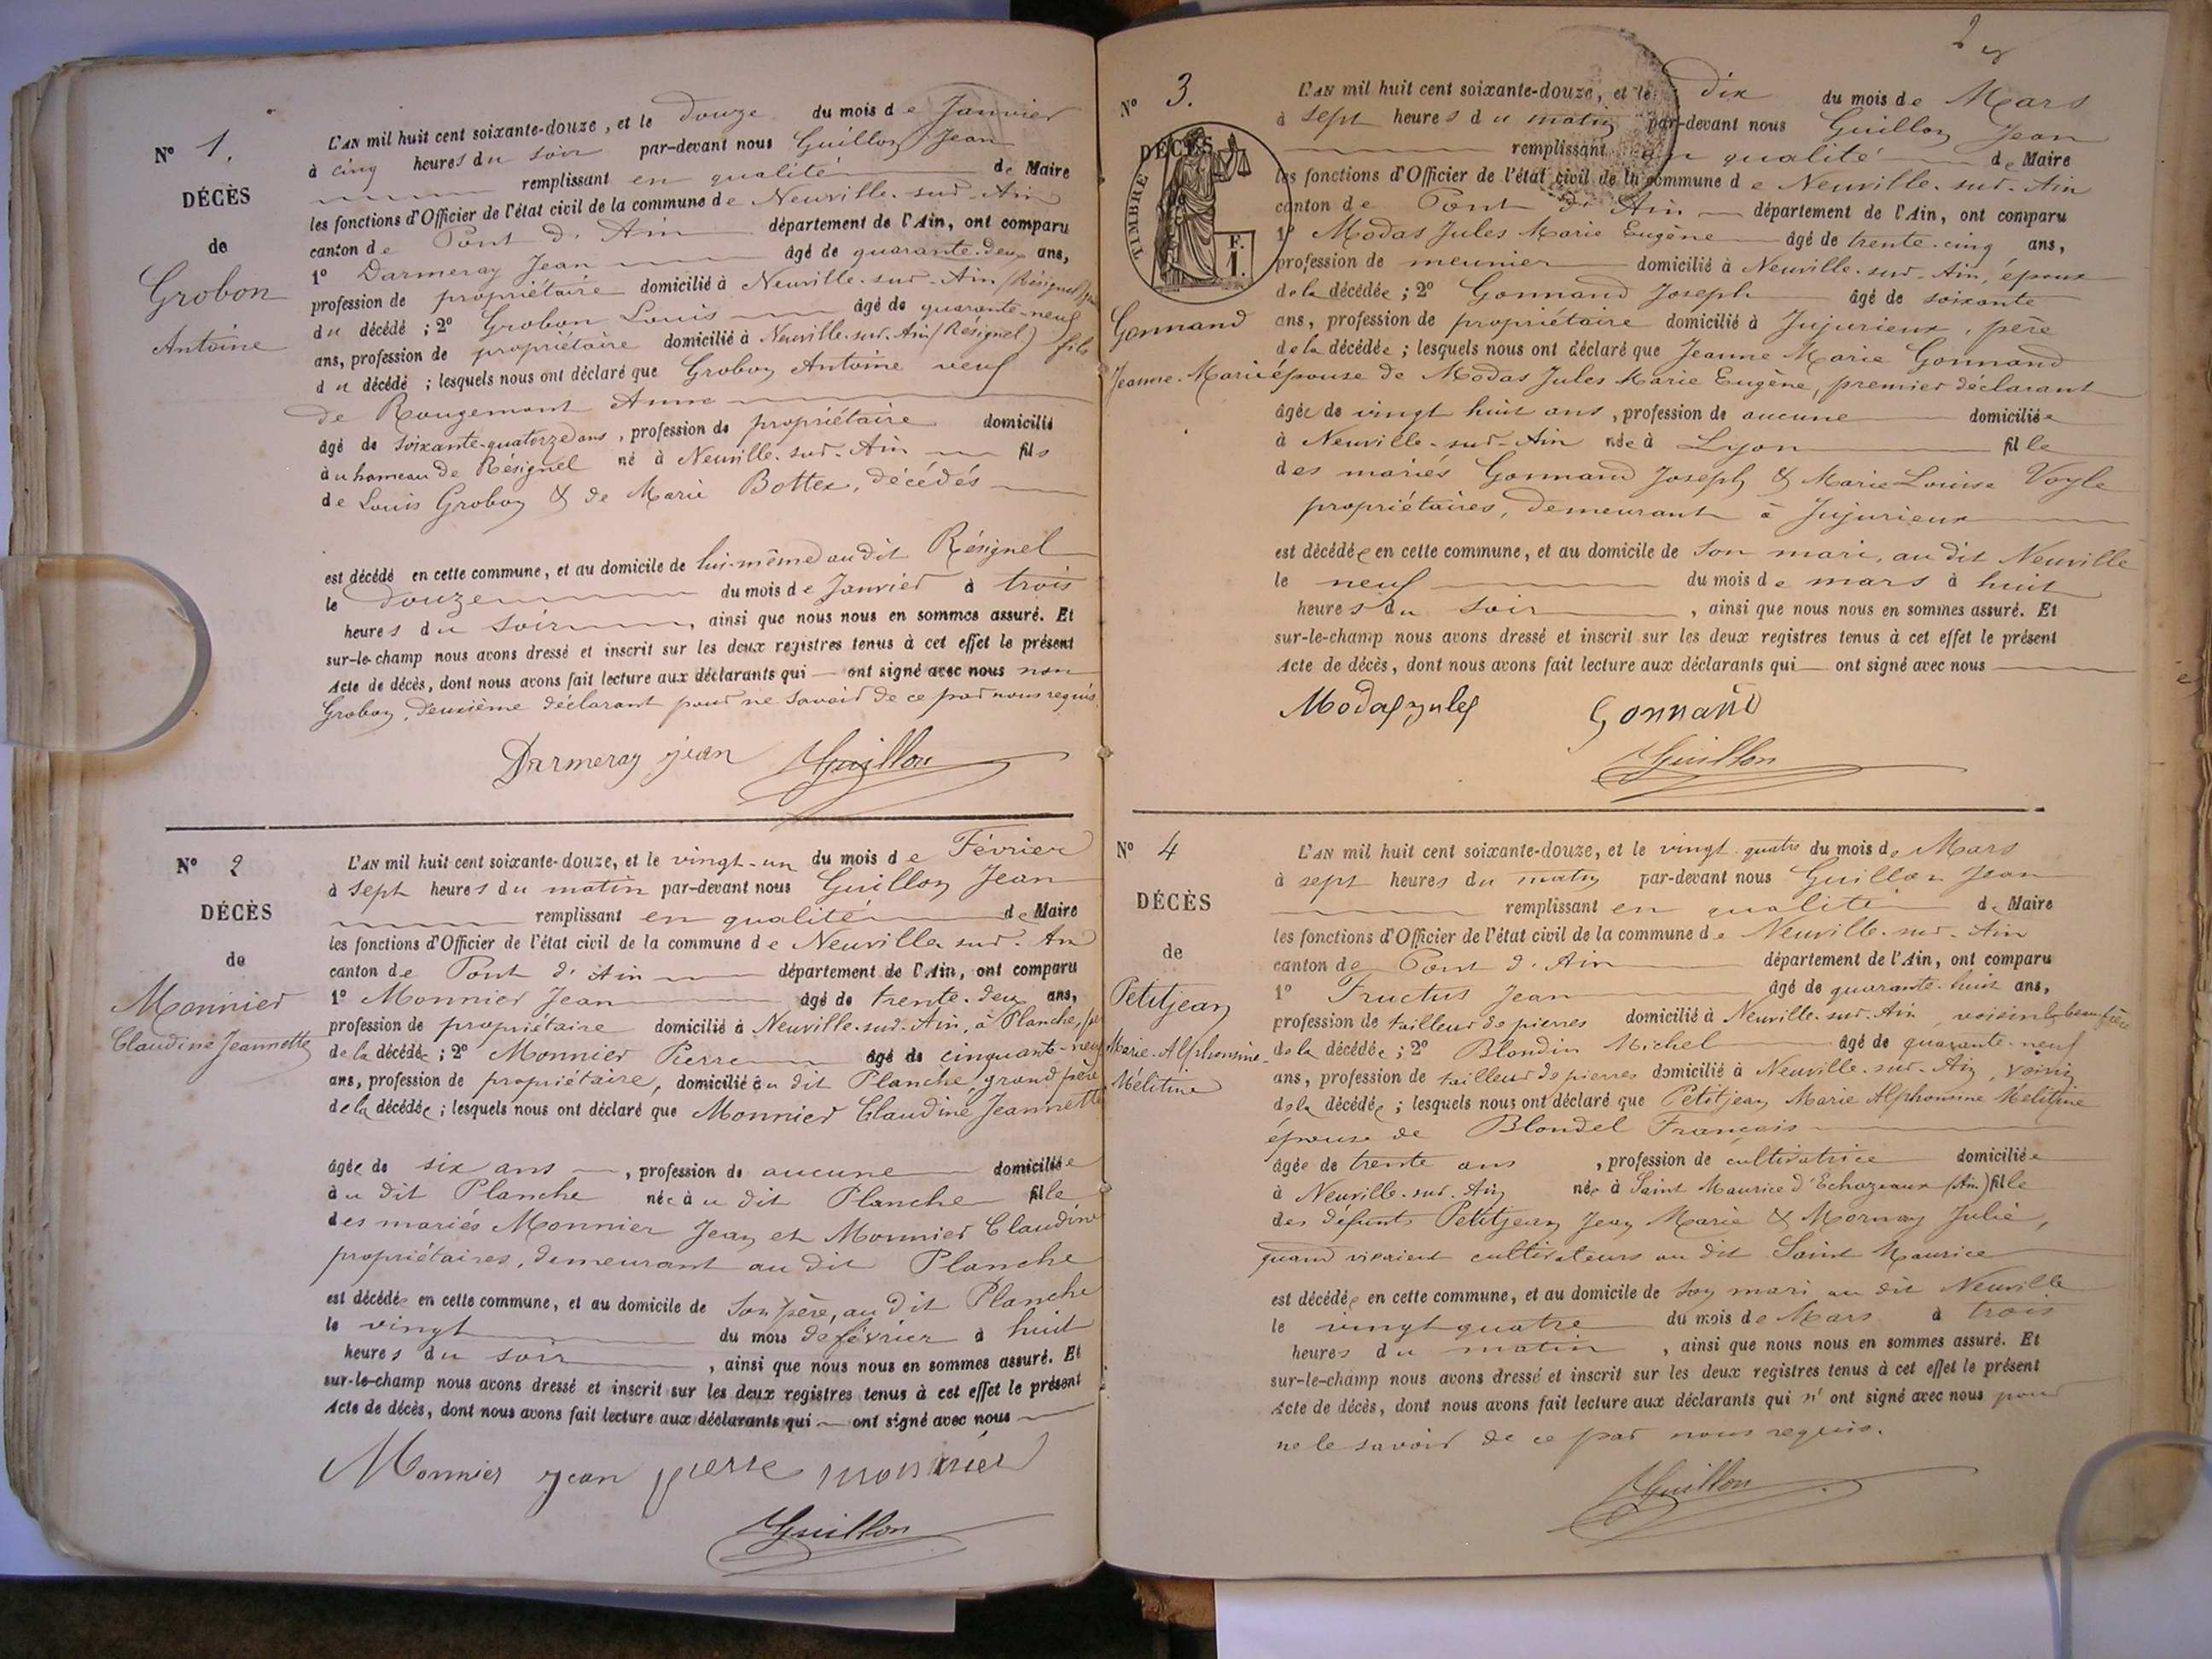 N° 1.
DÉCÈS
de
Grobon
Antoine
L'AN mil huit cent soixante-douze, et le douze du mois de Janvier
à cinq heures du soir par-devant nous Guillon Jean
remplissant en qualité de Maire
les fonctions d'Officier de l'état civil de la commune de Neuville-sur-Ain
canton de Pont d'Ain département de l'Ain, ont comparu
1° Darmeray Jean âgé de quarante-deux ans,
profession de propriétaire domicilié à Neuville-sur-Ain (Résignel)
du décédé ; 2° Grobon Louis âgé de quarante-neuf
ans, profession de propriétaire domicilié à Neuville-sur-Ain (Résignel) fils
du décédé ; lesquels nous ont déclaré que Grobon Antoine veuf
de Rougemont Anne
âgé de soixante-quatorze ans, profession de propriétaire domicilié
au hameau de Résignel né à Neuville-sur-Ain fils
de Louis Grobon & de Marie Bottex, décédés
est décédé en cette commune, et au domicile de lui-même au dit Résignel
le douze du mois de Janvier à trois
heures du soir, ainsi que nous nous en sommes assuré. Et
sur-le-champ nous avons dressé et inscrit sur les deux registres tenus à cet effet le présent
Acte de décès, dont nous avons fait lecture aux déclarants qui ont signé avec nous non
Grobon, deuxième déclarant pour ne savoir de ce par nous requis
Darmeray jean Guillon
N° 2
DÉCÈS
de
Monnier
Claudine Jeannette
L'AN mil huit cent soixante-douze, et le vingt-un du mois de Février
à sept heures du matin par-devant nous Guillon Jean
remplissant en qualité de Maire
les fonctions d'Officier de l'état civil de la commune de Neuville sur-Ain
canton de Pont d'Ain département de l'Ain, ont comparu
1° Monnier Jean âgé de trente-deux ans,
profession de propriétaire domicilié à Neuville-sur-Ain, à Planche,
de la décédée ; 2° Monnier Pierre âgé de cinquante-neuf
ans, profession de propriétaire, domicilié au dit Planche, grand père
de la décédée ; lesquels nous ont déclaré que Monnier Claudine Jeannette
âgée de six ans, profession de aucune domiciliée
au dit Planche née au dit Planche fille
des mariés Monnier Jean et Monnier Claudine
propriétaires, demeurant au dit Planche
est décédée en cette commune, et au domicile de son père, au dit Planche
le vingt du mois de février à huit
heures du soir, ainsi que nous nous en sommes assuré. Et
sur-le-champ nous avons dressé et inscrit sur les deux registres tenus à cet effet le présent
Acte de décès, dont nous avons fait lecture aux déclarants qui ont signé avec nous
Monnier jean pierre monnier
Guillon
2
N° 3.
DÉCÈS
TIMBRE
F.
1.
Gonnand
Jeanne-Marie
L'AN mil huit cent soixante-douze, et le dix du mois de Mars
à sept heures du matin par-devant nous Guillon Jean
remplissant en qualité de Maire
les fonctions d'Officier de l'état civil de la commune de Neuville-sur-Ain
canton de Pont d'Ain département de l'Ain, ont comparu
1° Modas Jules Marie Eugène âgé de trente-cinq ans,
profession de meunier domicilié à Neuville-sur-Ain, époux
de la décédée ; 2° Gonnand Joseph âgé de soixante
ans, profession de propriétaire domicilié à Jujurieux, père
de la décédée ; lesquels nous ont déclaré que Jeanne Marie Gonnand
épouse de Modas Jules Marie Eugène, premier déclarant
âgée de vingt huit ans, profession de aucune domiciliée
à Neuville-sur-Ain née à Lyon fille
des mariés Gonnand Joseph & Marie-Louise Voyle
propriétaires, demeurant à Jujurieux
est décédée en cette commune, et au domicile de son mari, au dit Neuville
le neuf du mois de mars à huit
heures du soir, ainsi que nous nous en sommes assuré. Et
sur-le-champ nous avons dressé et inscrit sur les deux registres tenus à cet effet le présent
Acte de décès, dont nous avons fait lecture aux déclarants qui ont signé avec nous
Modas jules Gonnand
Guillon
N° 4
DÉCÈS
de
Petitjean
Marie-Alphonsine-
Mélitine
L'AN mil huit cent soixante-douze, et le vingt-quatre du mois de Mars
à sept heures du matin par-devant nous Guillon Jean
remplissant en qualité de Maire
les fonctions d'Officier de l'état civil de la commune de Neuville-sur-Ain
canton de Pont d'Ain département de l'Ain, ont comparu
1° Fructus Jean âgé de quarante-huit ans,
profession de tailleur de pierres domicilié à Neuville-sur-Ain, voisin & beau frère
de la décédée ; 2° Blondin Michel âgé de quarante-neuf
ans, profession de tailleur de pierres domicilié à Neuville-sur-Ain, voisin
de la décédée ; lesquels nous ont déclaré que Petitjean Marie Alphonsine Mélitine
épouse de Blondel François
âgée de trente ans, profession de cultivatrice domiciliée
à Neuville-sur-Ain née à Saint Maurice d'Echazeaux (Ain) fille
des défunts Petitjean Jean Marie & Mornay Julie,
quand vivaient cultivateurs au dit Saint Maurice
est décédée en cette commune, et au domicile de son mari au dit Neuville
le vingt quatre du mois de Mars à trois
heures du matin, ainsi que nous nous en sommes assuré. Et
sur-le-champ nous avons dressé et inscrit sur les deux registres tenus à cet effet le présent
Acte de décès, dont nous avons fait lecture aux déclarants qui n'ont signé avec nous pour
ne le savoir de ce par nous requis.
Guillon